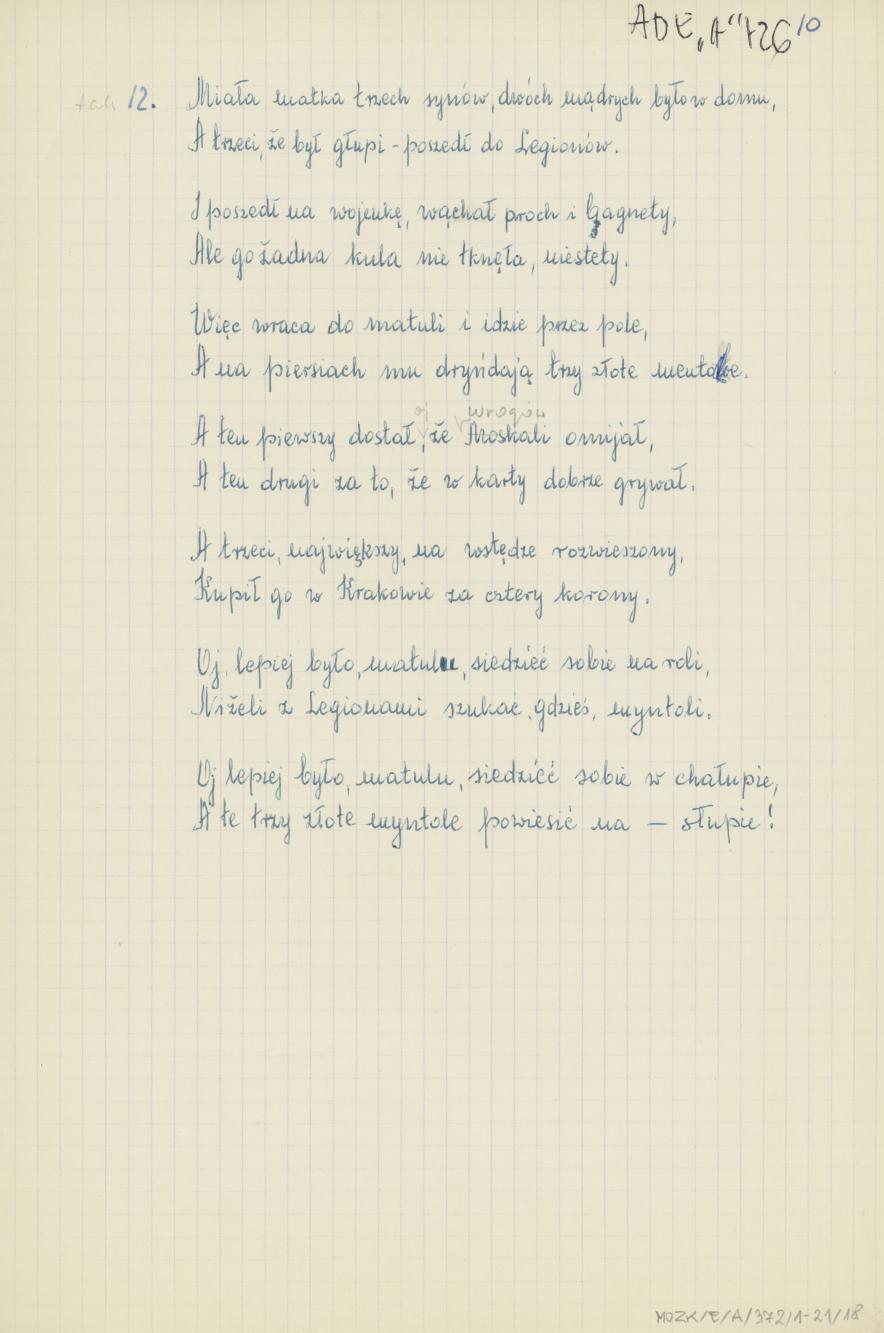 ADE „A" 126 10
tak 12. Miała matka trzech synów, dwóch mądrych było w domu,
A trzeci, że był głupi - poszedł do Legionów.
I poszedł na wojenkę, wąchał proch i bagnety,
Ale go żadna kula nie tknęła, niestety.
Więc wraca do matuli i idzie przez pole,
A na piersiach mu dryńdają trzy złote mentole.
oj wrogów
A ten pierwszy dostał, że Moskali omijał,
A ten drugi za to, że w karty dobrze grywał.
A trzeci, największy, na wstędze rozwieszony,
Kupił go w Krakowie za cztery korony.
Oj, lepiej było, matulu, siedzieć sobie na roli,
Niżeli z Legionami szukać, gdzieś, myntoli.
Oj lepiej było, matulu, siedzieć sobie w chałupie,
A te trzy złote myntole powiesić na — słupie!
MOZK/E/A/372/1-21/18